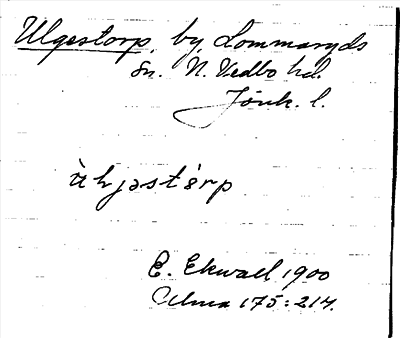 Ulgestorp, by, Lommaryds
sn. N. Vedbo hd.
Jönk. l.
E. Ekwall 1900
Ulma 175:214.